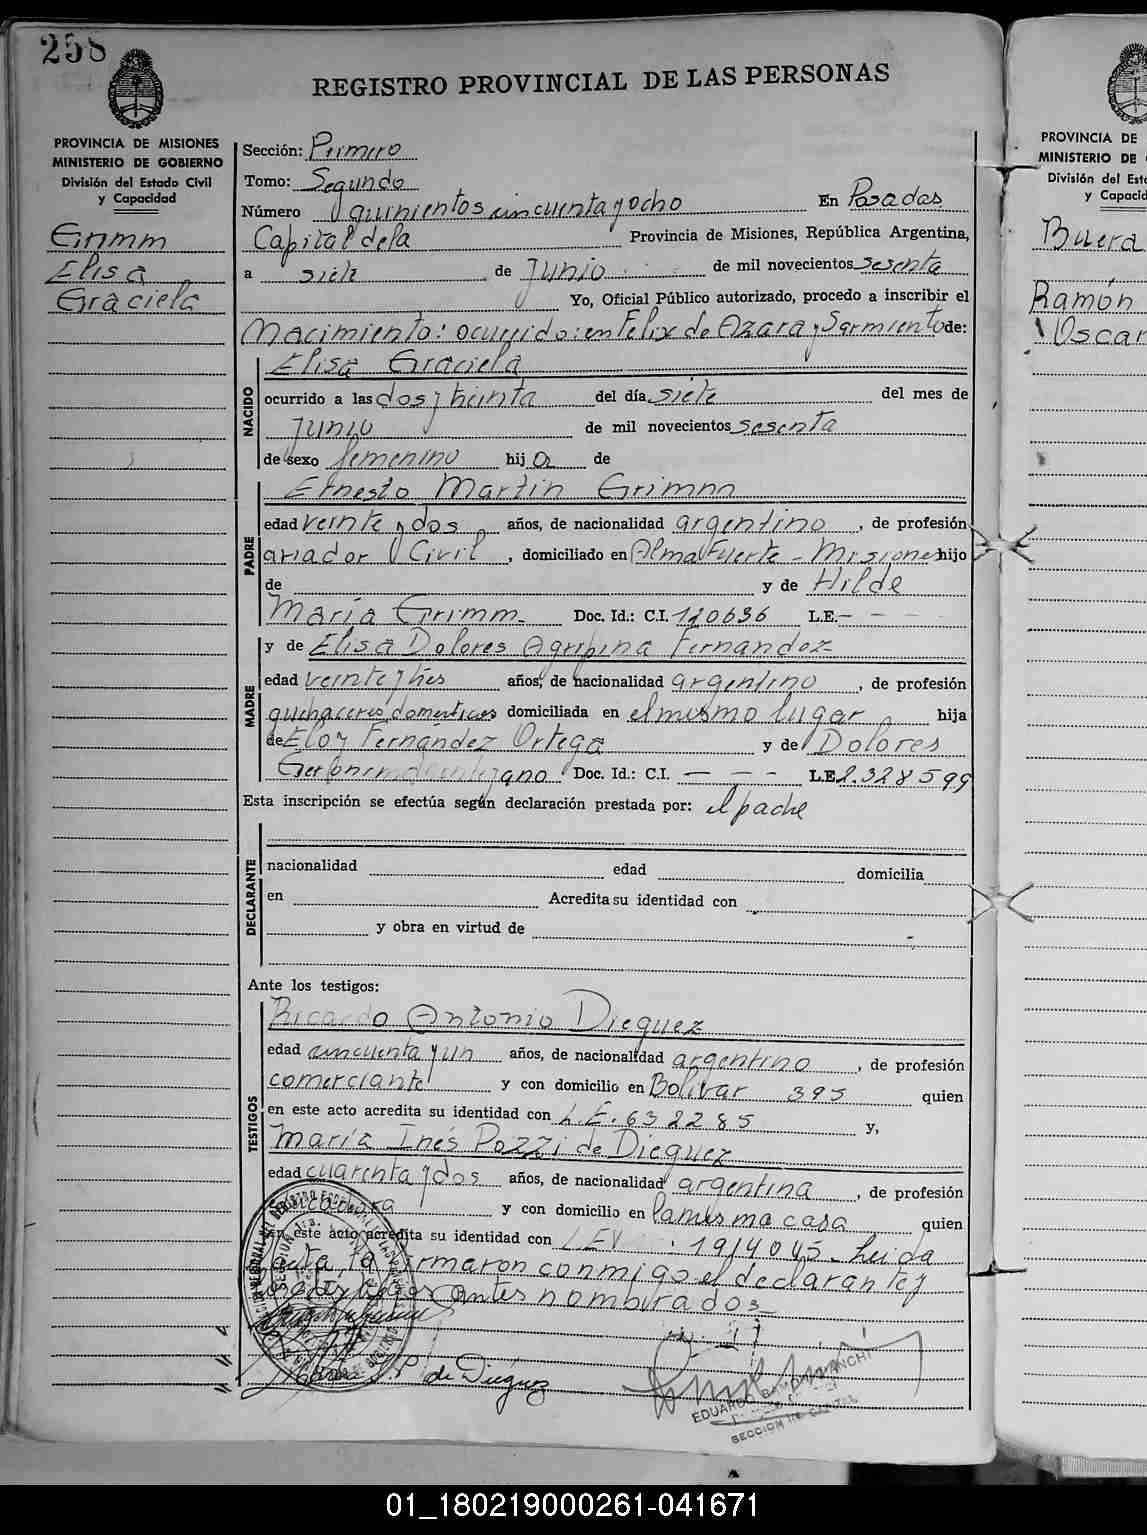 258
REGISTRO PROVINCIAL DE LAS PERSONAS
PROVINCIA DE MISIONES
MINISTERIO DE GOBIERNO
División del Estado Civil
y Capacidad
Grimm
Elisa
Graciela
Sección: Primero
Tomo: Segundo
Número quinientos cincuenta y ocho En Posadas
Capital de la Provincia de Misiones, República Argentina,
a siete de Junio de mil novecientos sesenta
Yo, Oficial Público autorizado, procedo a inscribir el
Nacimiento: ocurrido: en Felix de Azara y Sarmiento de:
NACIDO
Elisa Graciela
ocurrido a las dos y treinta del día siete del mes de
Junio de mil novecientos sesenta
de sexo femenino hija de
PADRE
Ernesto Martin Grimm
edad veinte y dos años, de nacionalidad argentino, de profesión
aviador Civil, domiciliado en Alma Fuerte - Misiones hijo
de y de Hilde
María Grimm Doc. Id.: C.I. 120636 L.E. - - -
MADRE
y de Elisa Dolores Agripina Fernandez
edad veinte y tres años, de nacionalidad argentino, de profesión
quehaceres domesticos domiciliada en el mismo lugar hija
de Eloy Fernández Ortega y de Dolores
Doc. Id.: C.I. — — - L.E. 2.328599
Esta inscripción se efectúa según declaración prestada por: el padre
DECLARANTE
nacionalidad edad domicilia
en Acredita su identidad con
y obra en virtud de
Ante los testigos:
TESTIGOS
Ricardo Antonio Dieguez
edad cincuenta y un años, de nacionalidad argentino, de profesión
comerciante y con domicilio en Bolivar 395 quien
en este acto acredita su identidad con L.E. 632285 y,
María Inés Pozzi de Dieguez
edad cuarenta y dos años, de nacionalidad argentina, de profesión
y con domicilio en la misma casa quien
en este acto acredita su identidad con Leida
acta, la firmaron conmigo el declarante y
los testigos antes nombrados
de Diéguez
EDUARDO
SECCION 1ra. CAPITAL
PROVINCIA DE
MINISTERIO DE
División del Esta
y Capacid
Buera
Ramón
Oscar
01_180219000261-041671